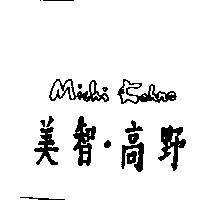 Michi Kohno
美智・高野